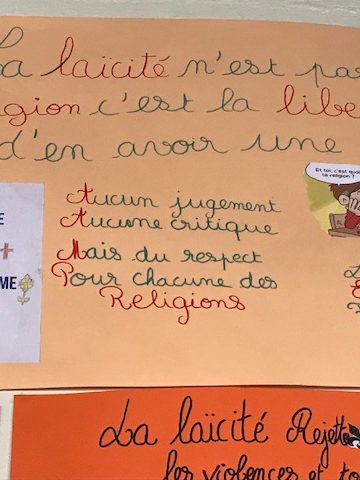 La laïcité n'est pas
gion c'est la libe
d'en avoir une
Et toi, c'est quoi
ta religion ?
Aucun jugement
Aucune critique
Mais du respect
Pour chacune des
Religions
E
+
ME
La laïcité Rejette
les violences et to